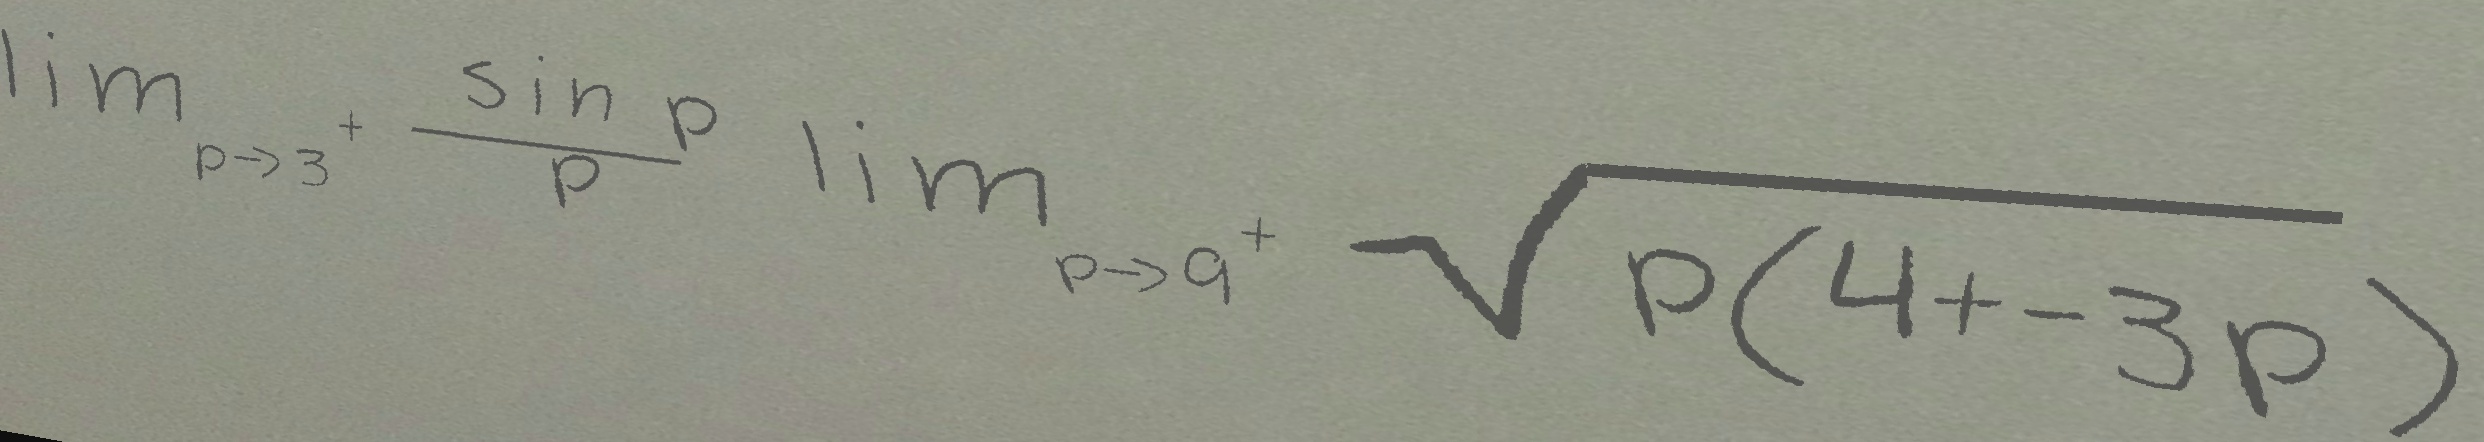 \lim_{p \to 3^+} \frac{\sin p}{p} \lim_{p \to 9^+} \sqrt{p(4+-3p)}